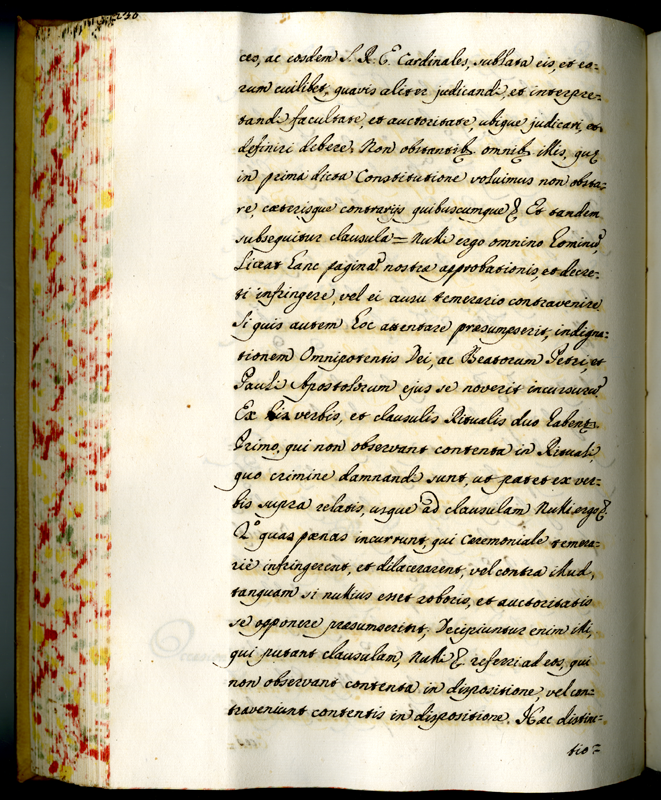 ces, ac eosdem S. R. E. Cardinales, sublata eis, et eo=
rum cuilibet, quavis aliter judicandi, et interpre=
tandi facultate, et auctoritate, ubique judicari, et
definiri debere. Non obstantib3 omnib3 illis, quę
in prima dicta Constitutione voluimus non obsta=
re, cæterisque contrarijs quibuscumque & Et tandem
subsequitur clausula = Nulli ergo omnino hominũ
Liceat hanc paginã nostræ approbationis, et decre=
ti infringere, vel ei ausu temerario contravenire
Si quis autem hoc attentare præsumpserit, indigna=
tionem Omnipotentis Dei, ac Beatorum Petri, et
Pauli Apostolorum ejus se noverit incursurũ.
Ex his verbis, et clausulis Ritualis duo habent̃
Primo, qui non observant contenta in Rituali,
quo crimine damnandi sunt, ut patet ex ver=
bis supra relatis, usque ad clausulam Nulli ergo &
2.º quas pænas incurrunt, qui Ceremoniale temera=
riè infringerent, et dilacerarent, vel contra illud,
tanquam si nullius esset roboris, et auctoritatis
se opponere præsumserint, Decipiuntur enim illi,
qui putant clausulam, Nulli & referri ad eos, qui
non observant contenta in dispositione, vel con=
traveniunt contentis in dispositione. Hæc distinc=
tio=